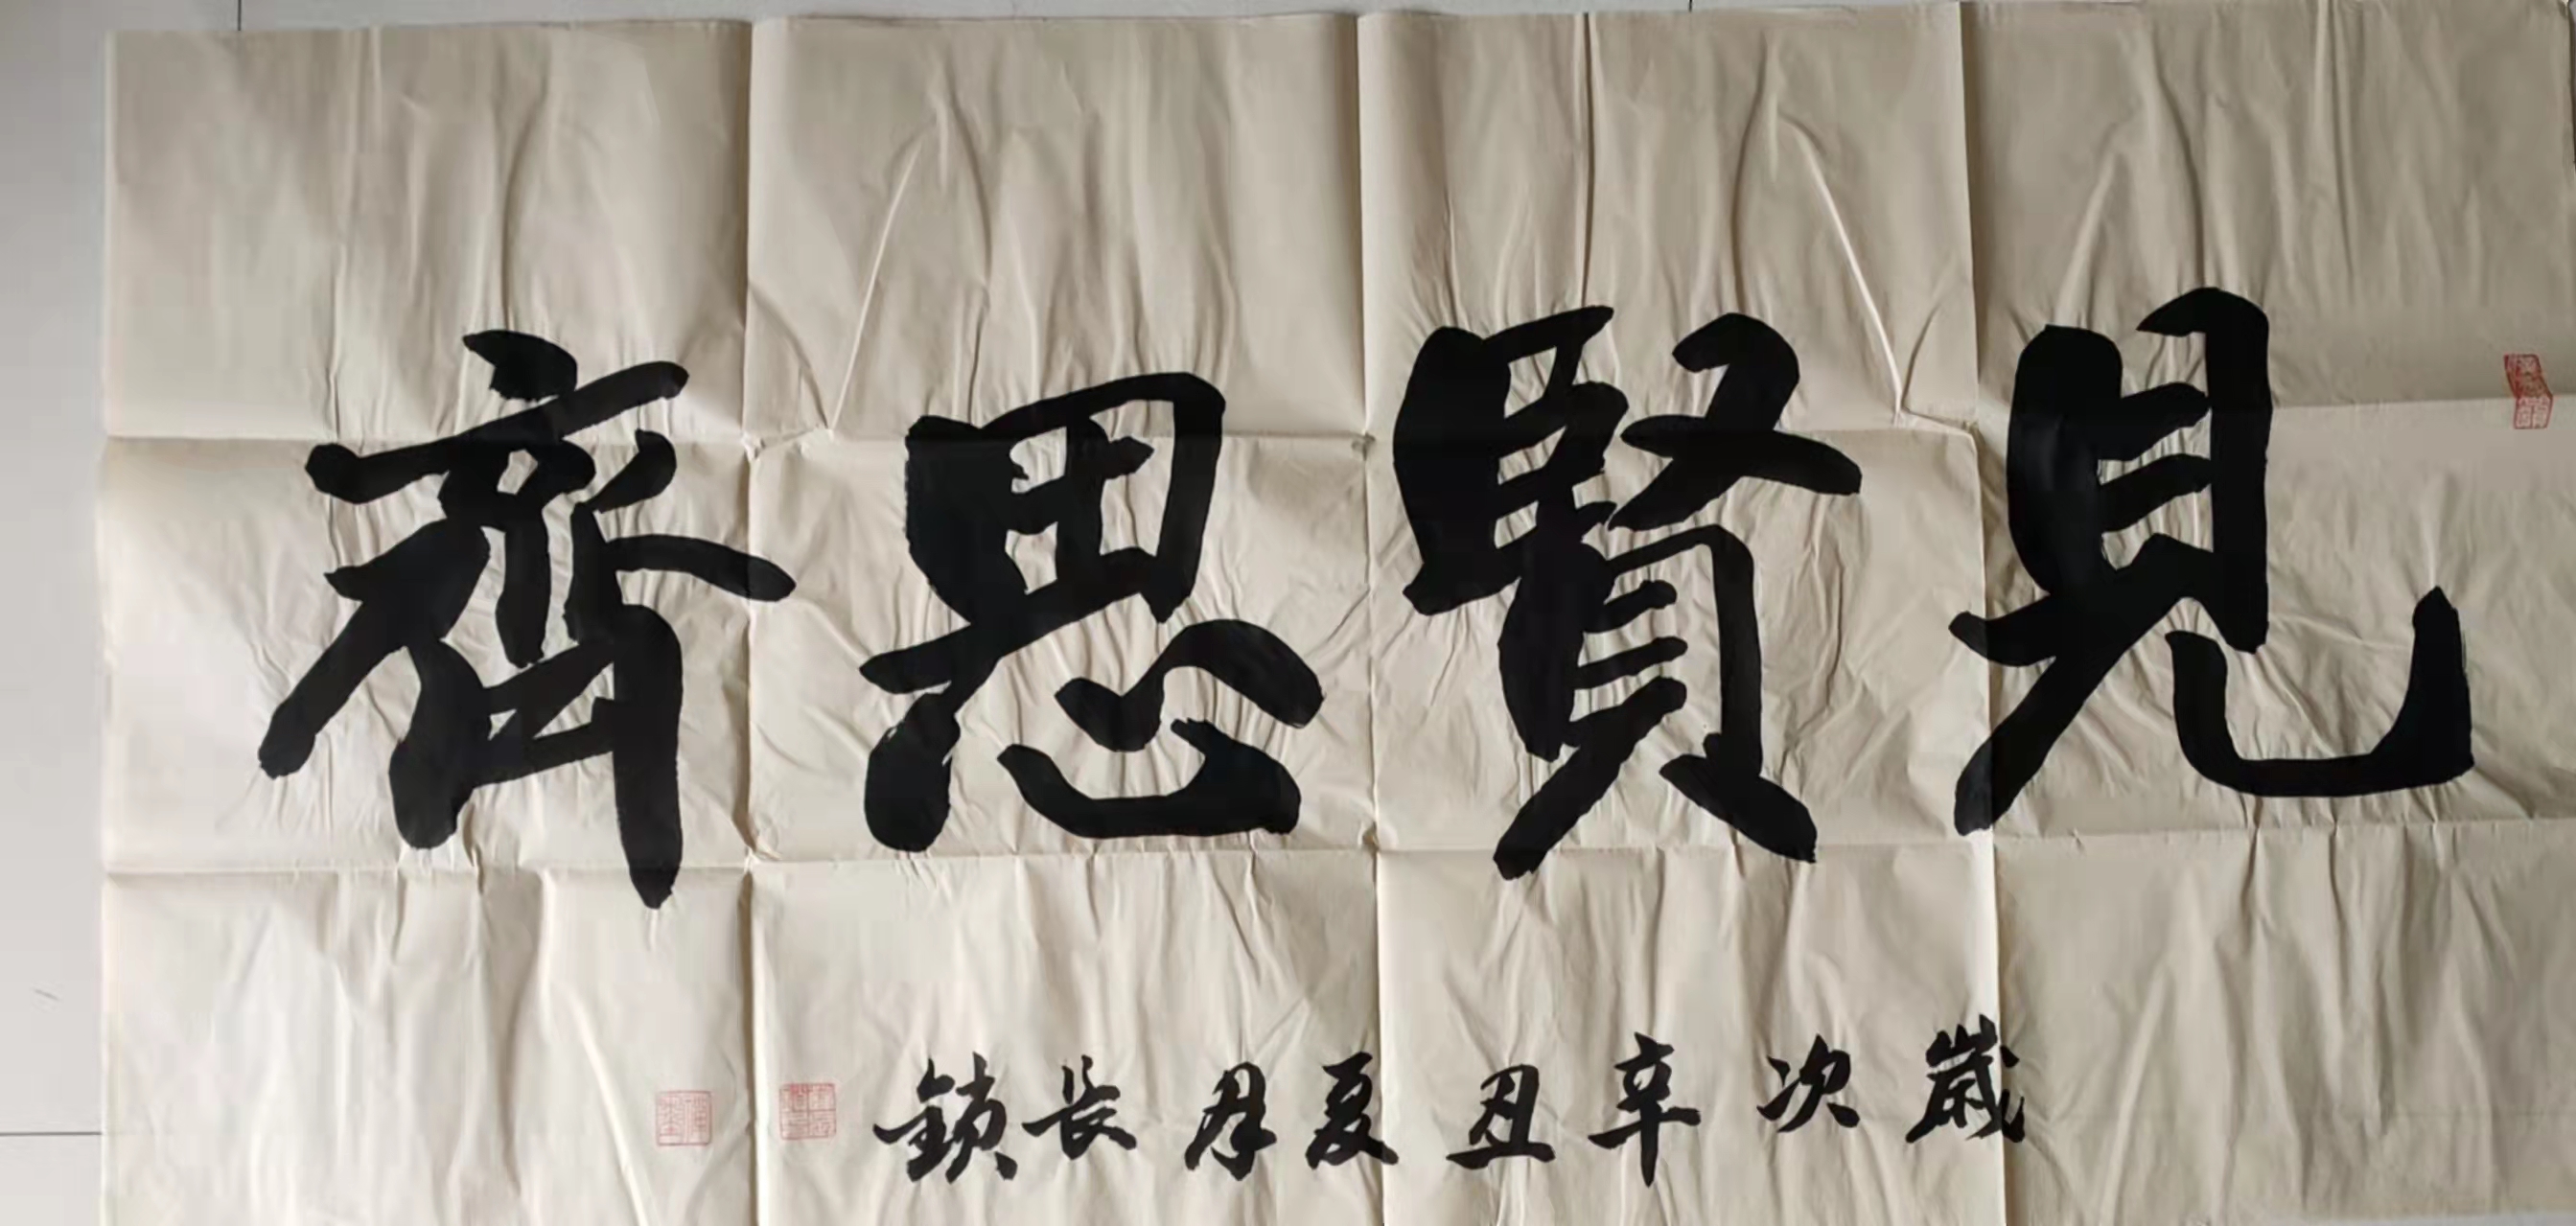 見賢思齊
歲次辛丑夏月長鎖